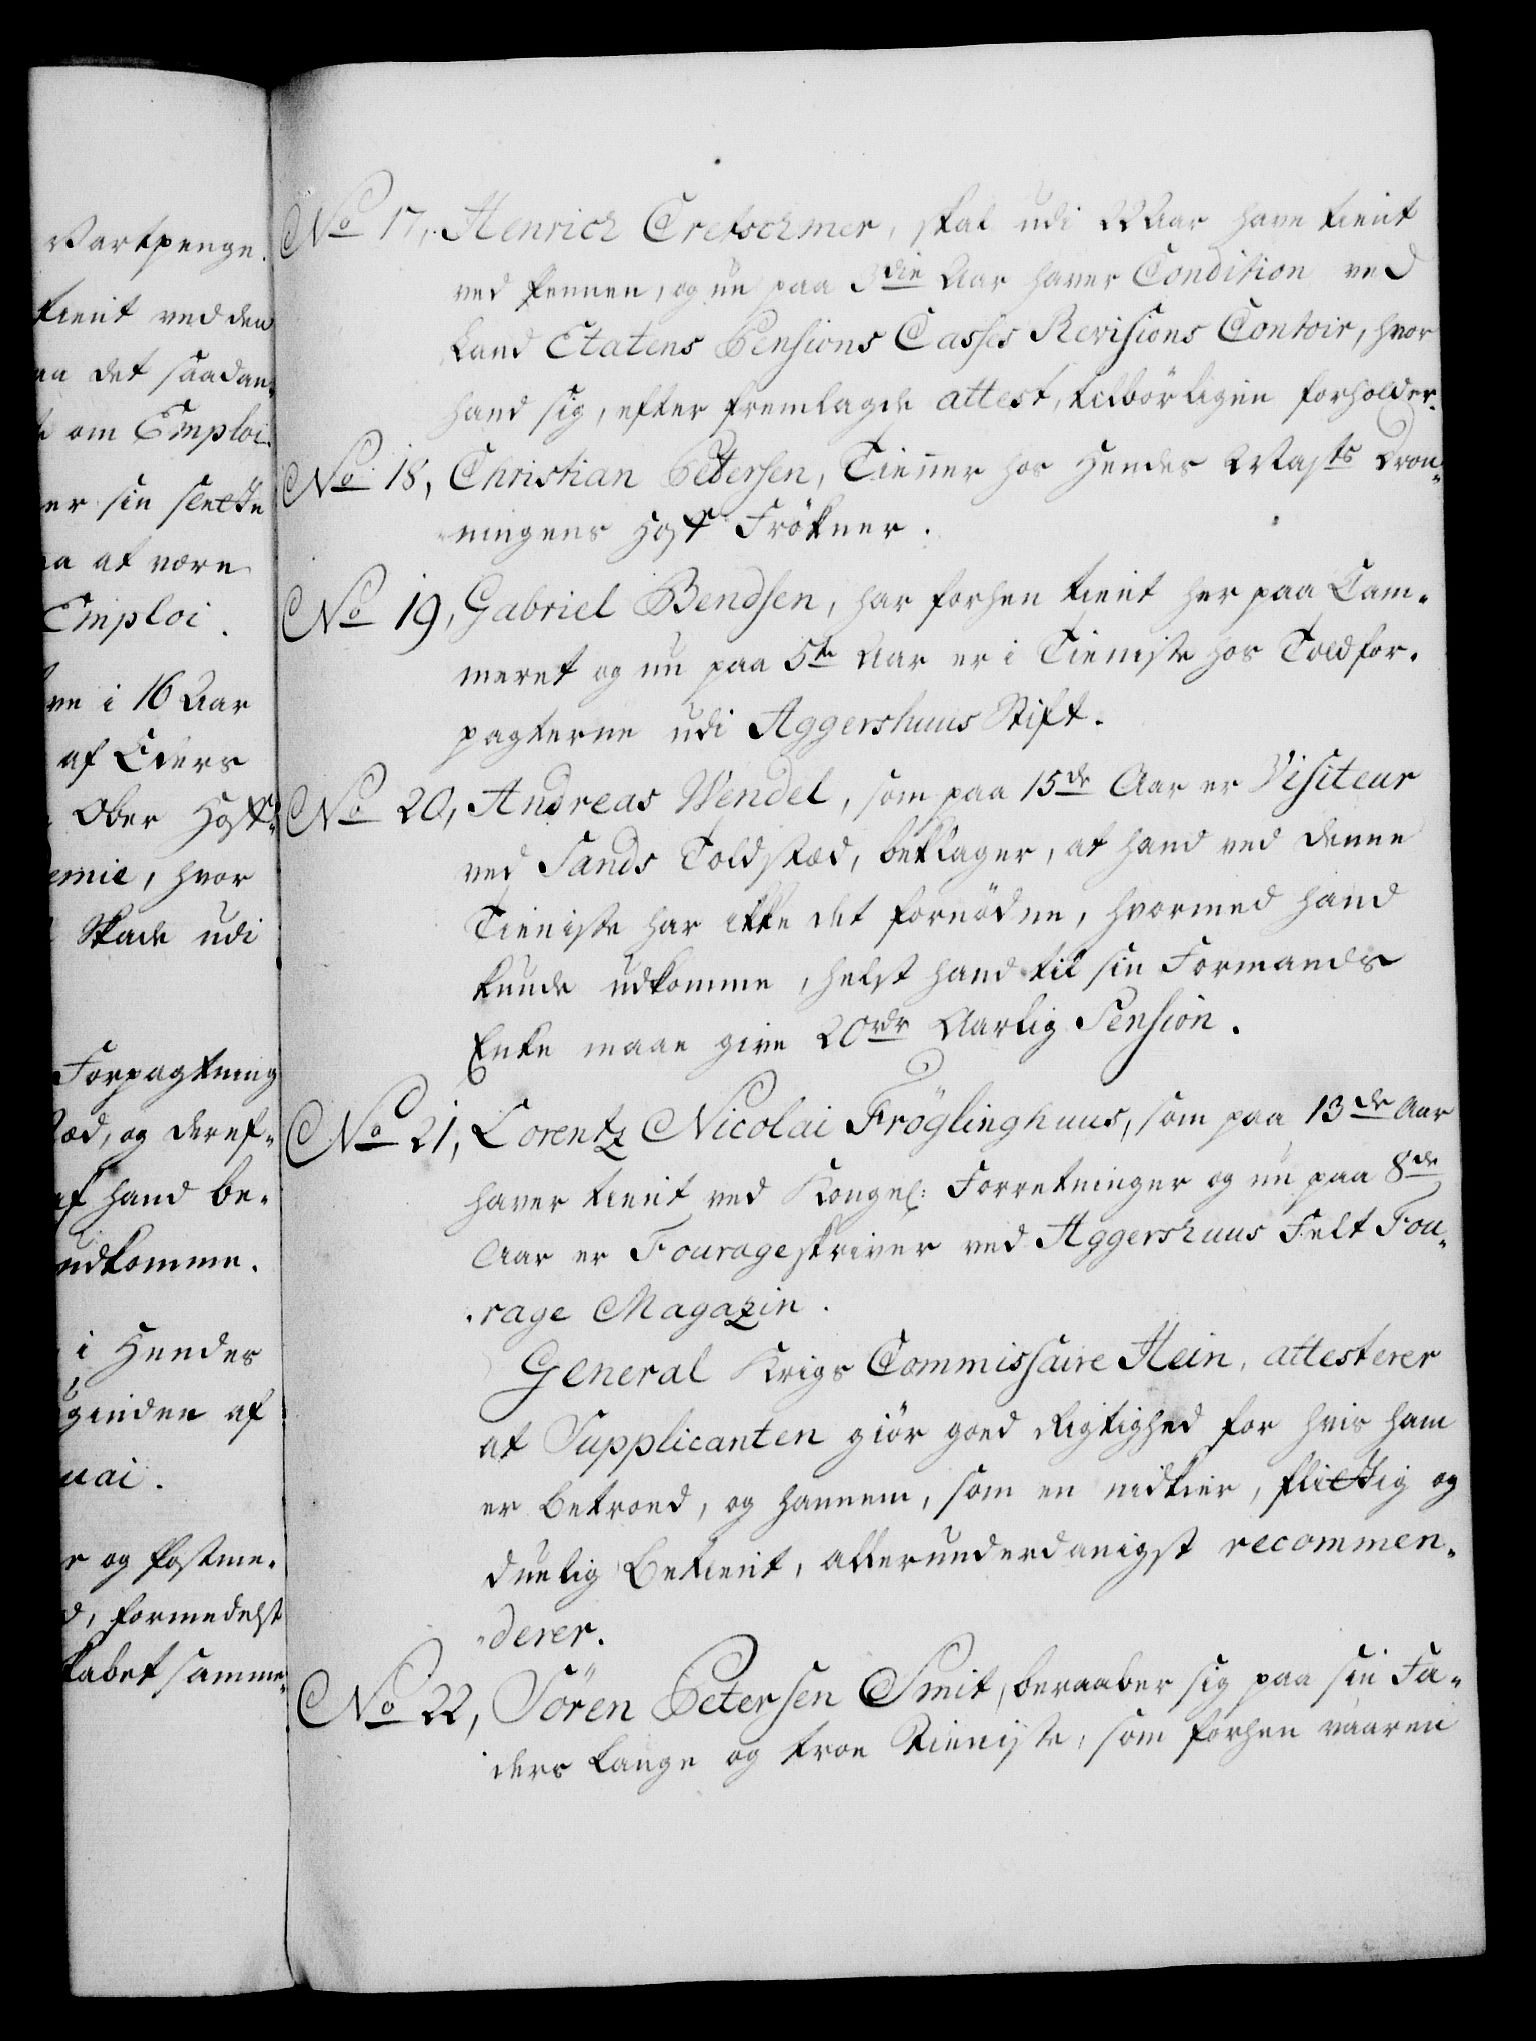 Vartpenge.
tient ved den
det saadan-
om Emploi.
er sin slette
at være
Emploi.
i 16 Aar
af Eders
Ober Hof-
emie, hvor
Skade udi
Forpagtning
og deref-
hand be-
udkomme.
i Hendes
ginden af
uai.
og Postme-
formedelst
kabet samme-
No 17, Henrich Cretschmer, skal udi 22 Aar have tient
ved Pennen, og nu paa 3die Aar haver Condition ved
Land Etatens Pensions Casses Revisions Contoir, hvor
hand sig, efter fremlagde attest, tilbörligen forholder.
No 18, Christian Petersen, Tienner hos Hendes Mayts Dron-
ningens Hof Frökner.
No 19, Gabriel Bendsen, har forhen tient her paa Cam-
meret og nu paa 5te Aar er i Tieniste hos Toldfor-
pagterne udi Aggershuus Stift.
No 20, Andreas Wendel, som paa 15de Aar er Visiteur
ved Sands Toldsted, beklager, at hand ved denne
Tieniste har ikke det fornödne, hvormed hand
kunde udkomme, helst hand til sin Formands
Enke maae give 20 rdr Aarlig Pension.
No 21, Lorentz Nicolai Fröglinghuus, som paa 13de Aar
haver tient ved Kongel: Forretninger og nu paa 8de
Aar er Fourageskriver ved Aggershuus Felt Fou-
rage Magazin.
General Krigs Commissaire Hein, attesterer
at Supplicanten giör goed Rigtighed for hvis ham
er betroed, og hannem, som en nidkier, flittig og
duelig Betient, allerunderdanigst recommen-
derer.
No 22, Sören Petersen Smit, beraaber sig paa sin Fa-
ders lange og troe Tieniste, som forhen vaaren